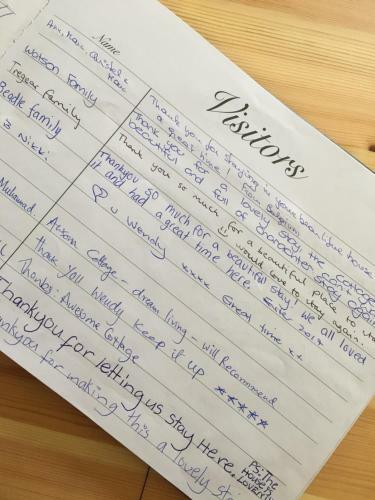 Name
Visitors
Ann, Marc, Christel &
Marc
Thank you for staying in your beautiful house
a great time! From Belgium
Watson Family
Thank you for a lovely stay, the cottage
beautiful and full of character
Tregear family
Thank you so much for a beautiful place to stay
would love to stay again..
Beadle family
Thankyou so much for a beautiful stay! we all loved
& Nikki
it and had a great time here. 2017
u Wendy xxxx Great time xx
Muhammad.
College - dream living - will Recommend
Thank you Wendy keep it up *****
Thanks. Awesome Cottage
Thankyou for letting us stay Here.
PS: The
House is
Lovely
thankyou for making this a lovely st